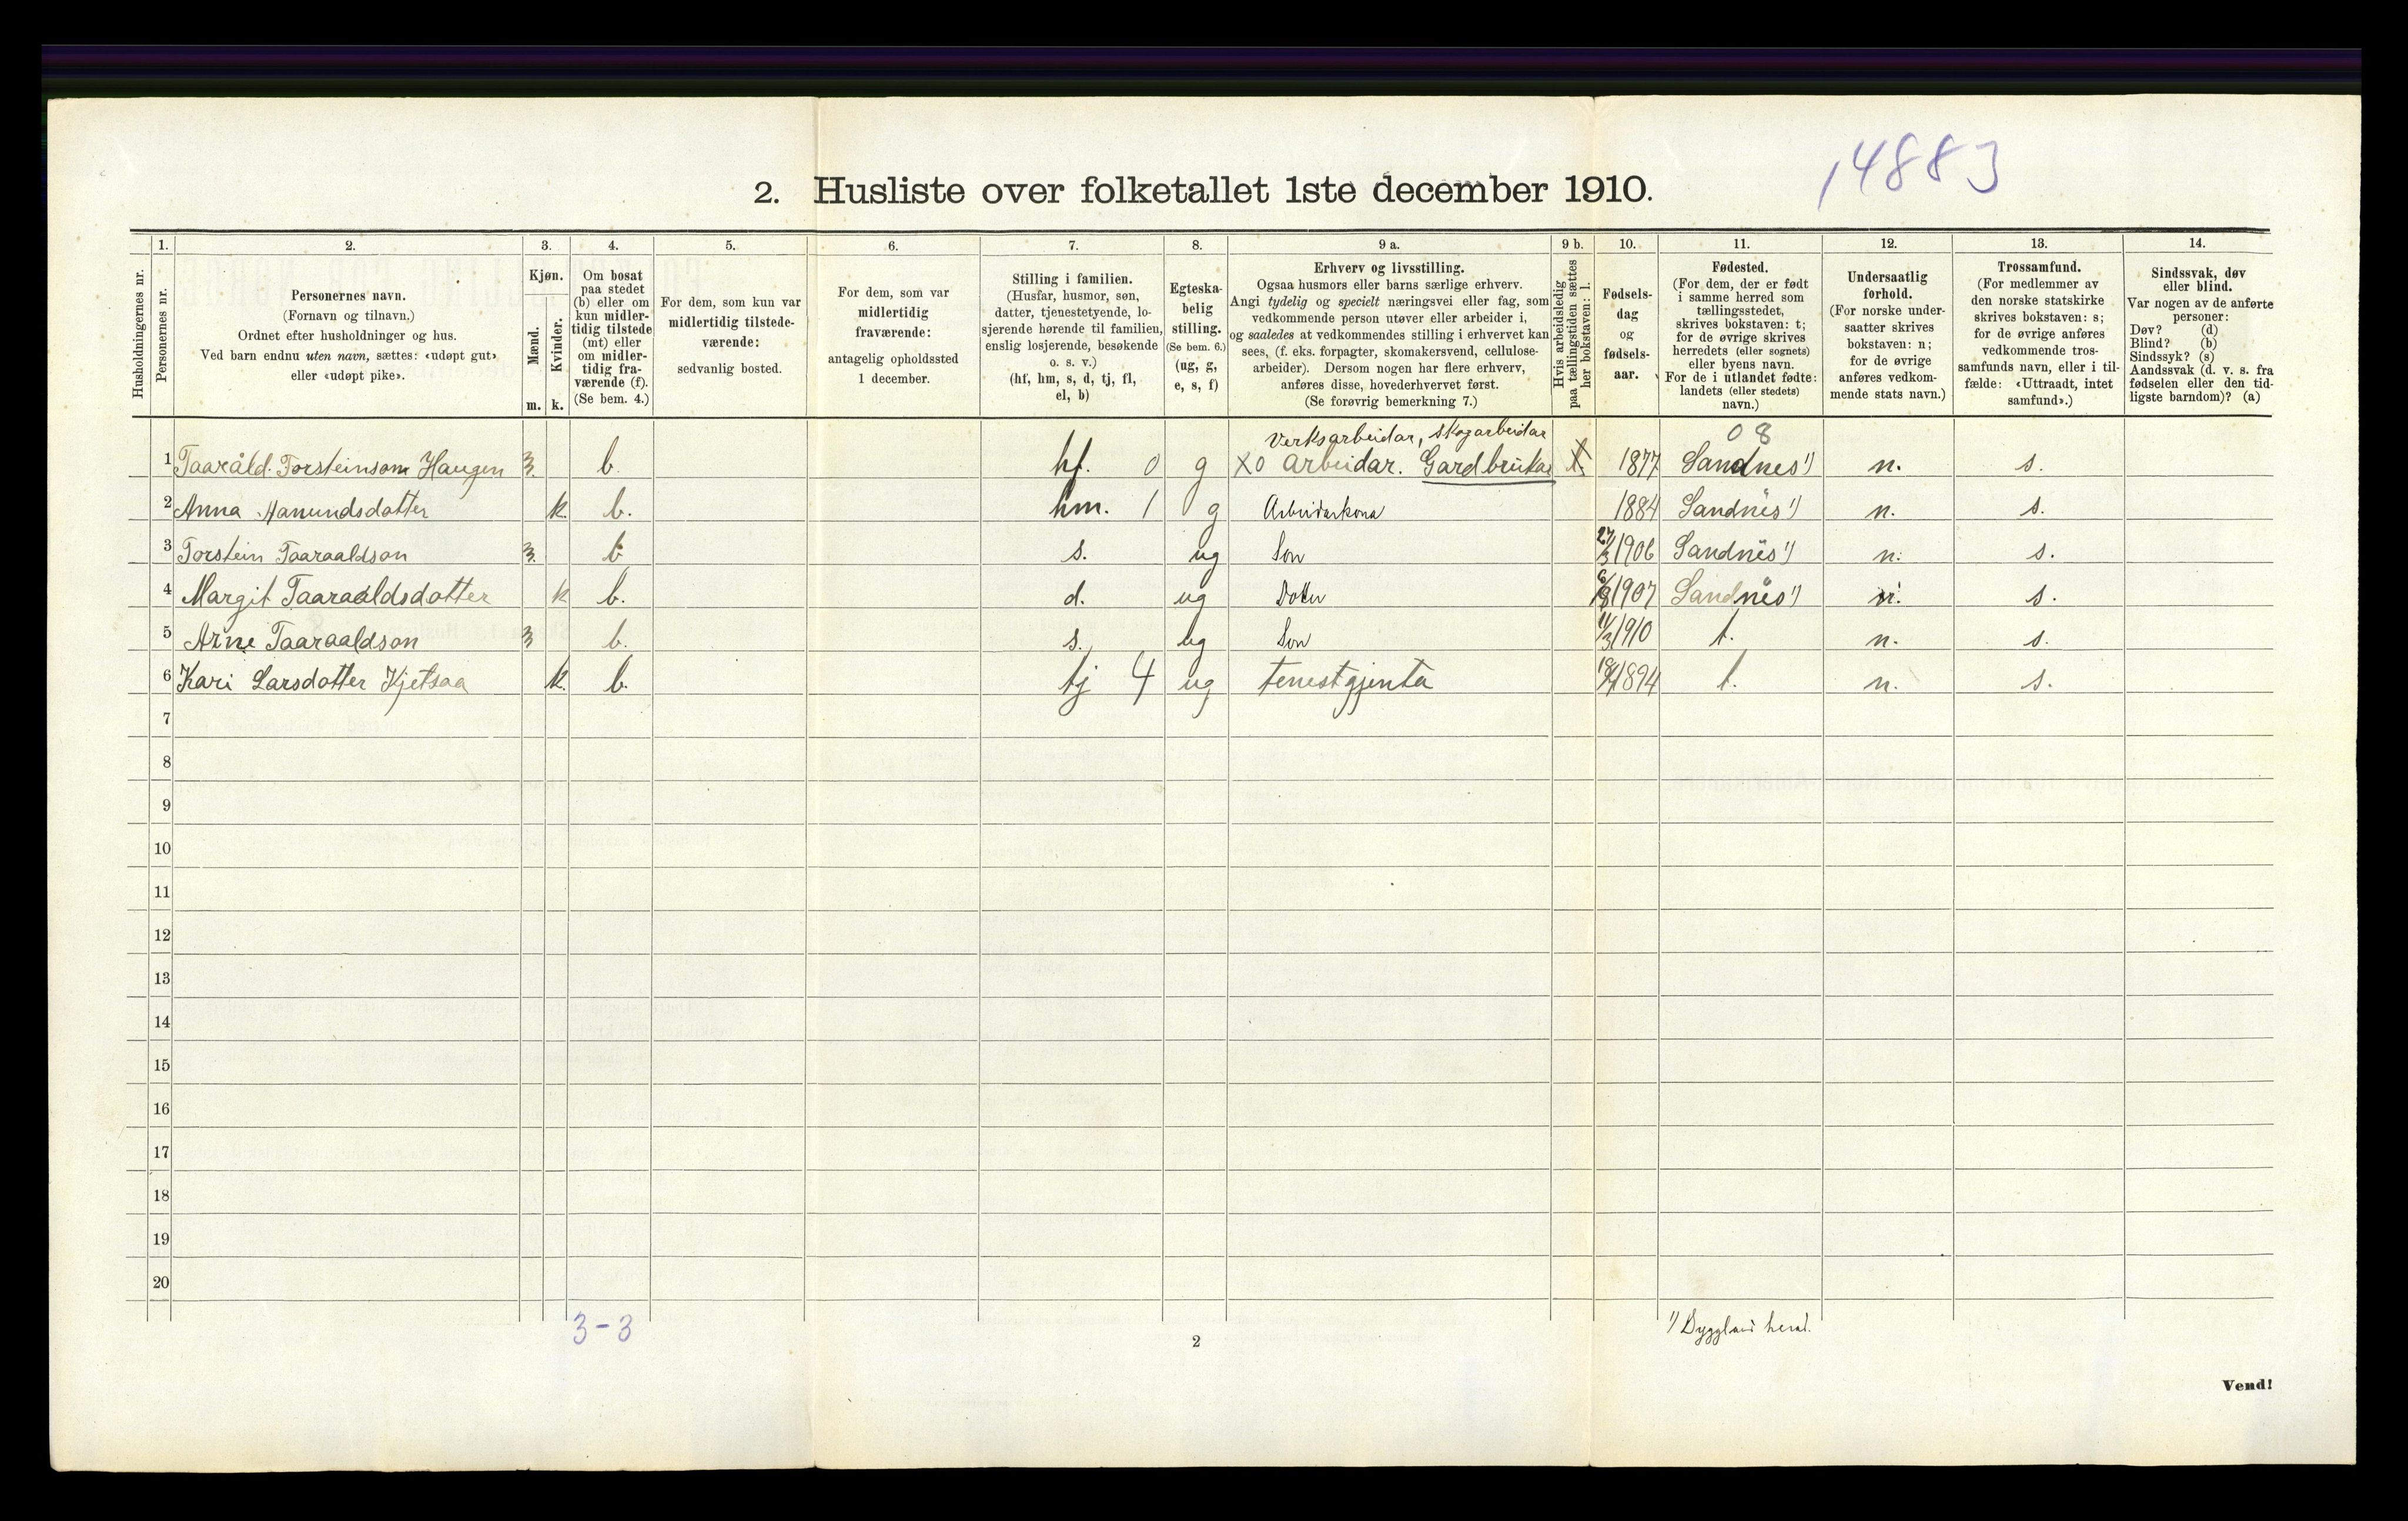 14883
2. Husliste over folketallet 1ste december 1910.
1. 2. 3. 4. 5. 6. 7. 8. 9 a. 9 b. 10. 11. 12. 13. 14.
Husholdningernes nr.
Personernes nr.
Personernes navn.
(Fornavn og tilnavn.)
Ordnet efter husholdninger og hus.
Ved barn endnu uten navn, sættes: «udøpt gut»
eller «udøpt pike».
Kjøn.
Mænd.
Kvinder.
m. k.
Om bosat
paa stedet
(b) eller om
kun midler-
tidig tilstede
(mt) eller
om midler-
tidig fra-
værende (f).
(Se bem. 4.)
For dem, som kun var
midlertidig tilstede-
værende:
sedvanlig bosted.
For dem, som var
midlertidig
fraværende:
antagelig opholdssted
1 december.
Stilling i familien.
(Husfar, husmor, søn,
datter, tjenestetyende, lo-
sjerende hørende til familien,
enslig losjerende, besøkende
o. s. v.)
(hf, hm, s, d, tj, fl,
el, b)
Egteska-
belig
stilling.
(Se bem. 6.)
(ug, g,
e, s, f)
Erhverv og livsstilling.
Ogsaa husmors eller barns særlige erhverv.
Angi tydelig og specielt næringsvei eller fag, som
vedkommende person utøver eller arbeider i,
og saaledes at vedkommendes stilling i erhvervet kan
sees, (f. eks. forpagter, skomakersvend, cellulose-
arbeider). Dersom nogen har flere erhverv,
anføres disse, hovederhvervet først.
(Se forøvrig bemerkning 7.)
Hvis arbeidsledig
paa tællingstiden sættes
her bokstaven: l.
Fødsels-
dag
og
fødsels-
aar.
Fødested.
(For dem, der er født
i samme herred som
tællingsstedet,
skrives bokstaven: t;
for de øvrige skrives
herredets (eller sognets)
eller byens navn.
For de i utlandet fødte:
landets (eller stedets)
navn.)
Undersaatlig
forhold.
(For norske under-
saatter skrives
bokstaven: n;
for de øvrige
anføres vedkom-
mende stats navn.)
Trossamfund.
(For medlemmer av
den norske statskirke
skrives bokstaven: s;
for de øvrige anføres
vedkommende tros-
samfunds navn, eller i til-
fælde: «Uttraadt, intet
samfund».)
Sindssvak, døv
eller blind.
Var nogen av de anførte
personer:
Døv? (d)
Blind? (b)
Sindssyk? (s)
Aandssvak (d. v. s. fra
fødselen eller den tid-
ligste barndom)? (a)
Verksarbeidar, skogarbeidar 08
1 Taaråld Torsteinsom Haugen m. b. hf. 0 g X0 arbeidar. Gardbrukar 1877 Sandnes 1) n. s.
2 Anna Hanundsdotter k. b. hm. 1 g Arbeidarkona 1884 Sandnes 1) n. s.
3 Torstein Taaraaldson m. b s. ug Son 27/3 1906 Sandnes 1) n. s.
4 Margit Taaraaldsdotter k b. d. ug Dotter 1907 Sandnes 1) n. s.
5 Arne Taaraaldson m b. s. ug Son 11/3 1910 t. n. s.
6 Kari Larsdotter Kjetsaa k. b. tj 4 ug tenestgjenta 1894 t. n. s.
7
8
9
10
11
12
13
14
15
16
17
18
19
20
3-3
2
1) Byggland herad.
Vend!